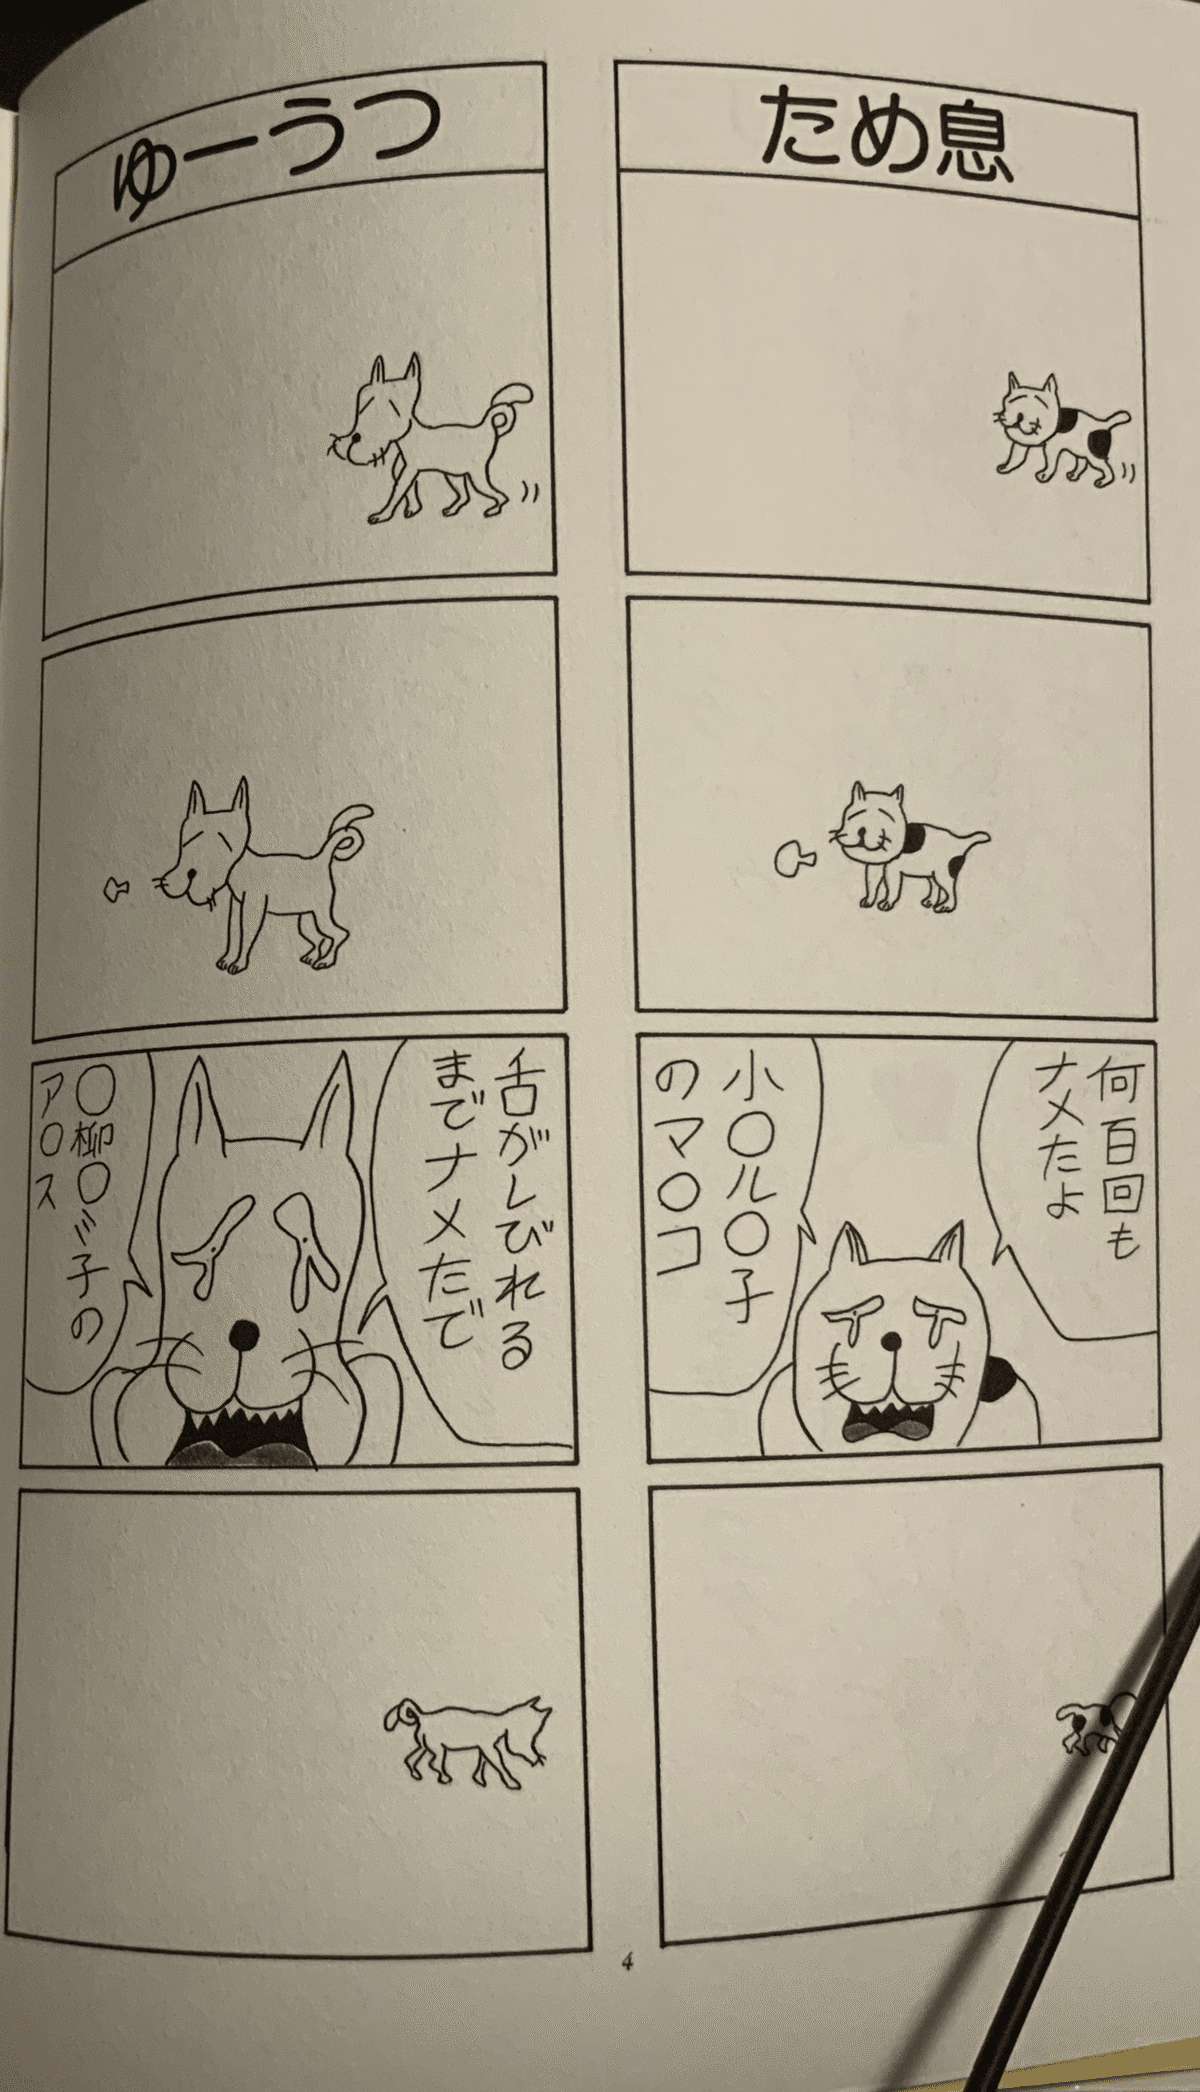 ため息
何百回も
ナメたよ
小〇ル〇子
のマ〇コ
ゆーうつ
舌がしびれる
までナメたで
〇柳〇ミ子の
ア〇ス
4